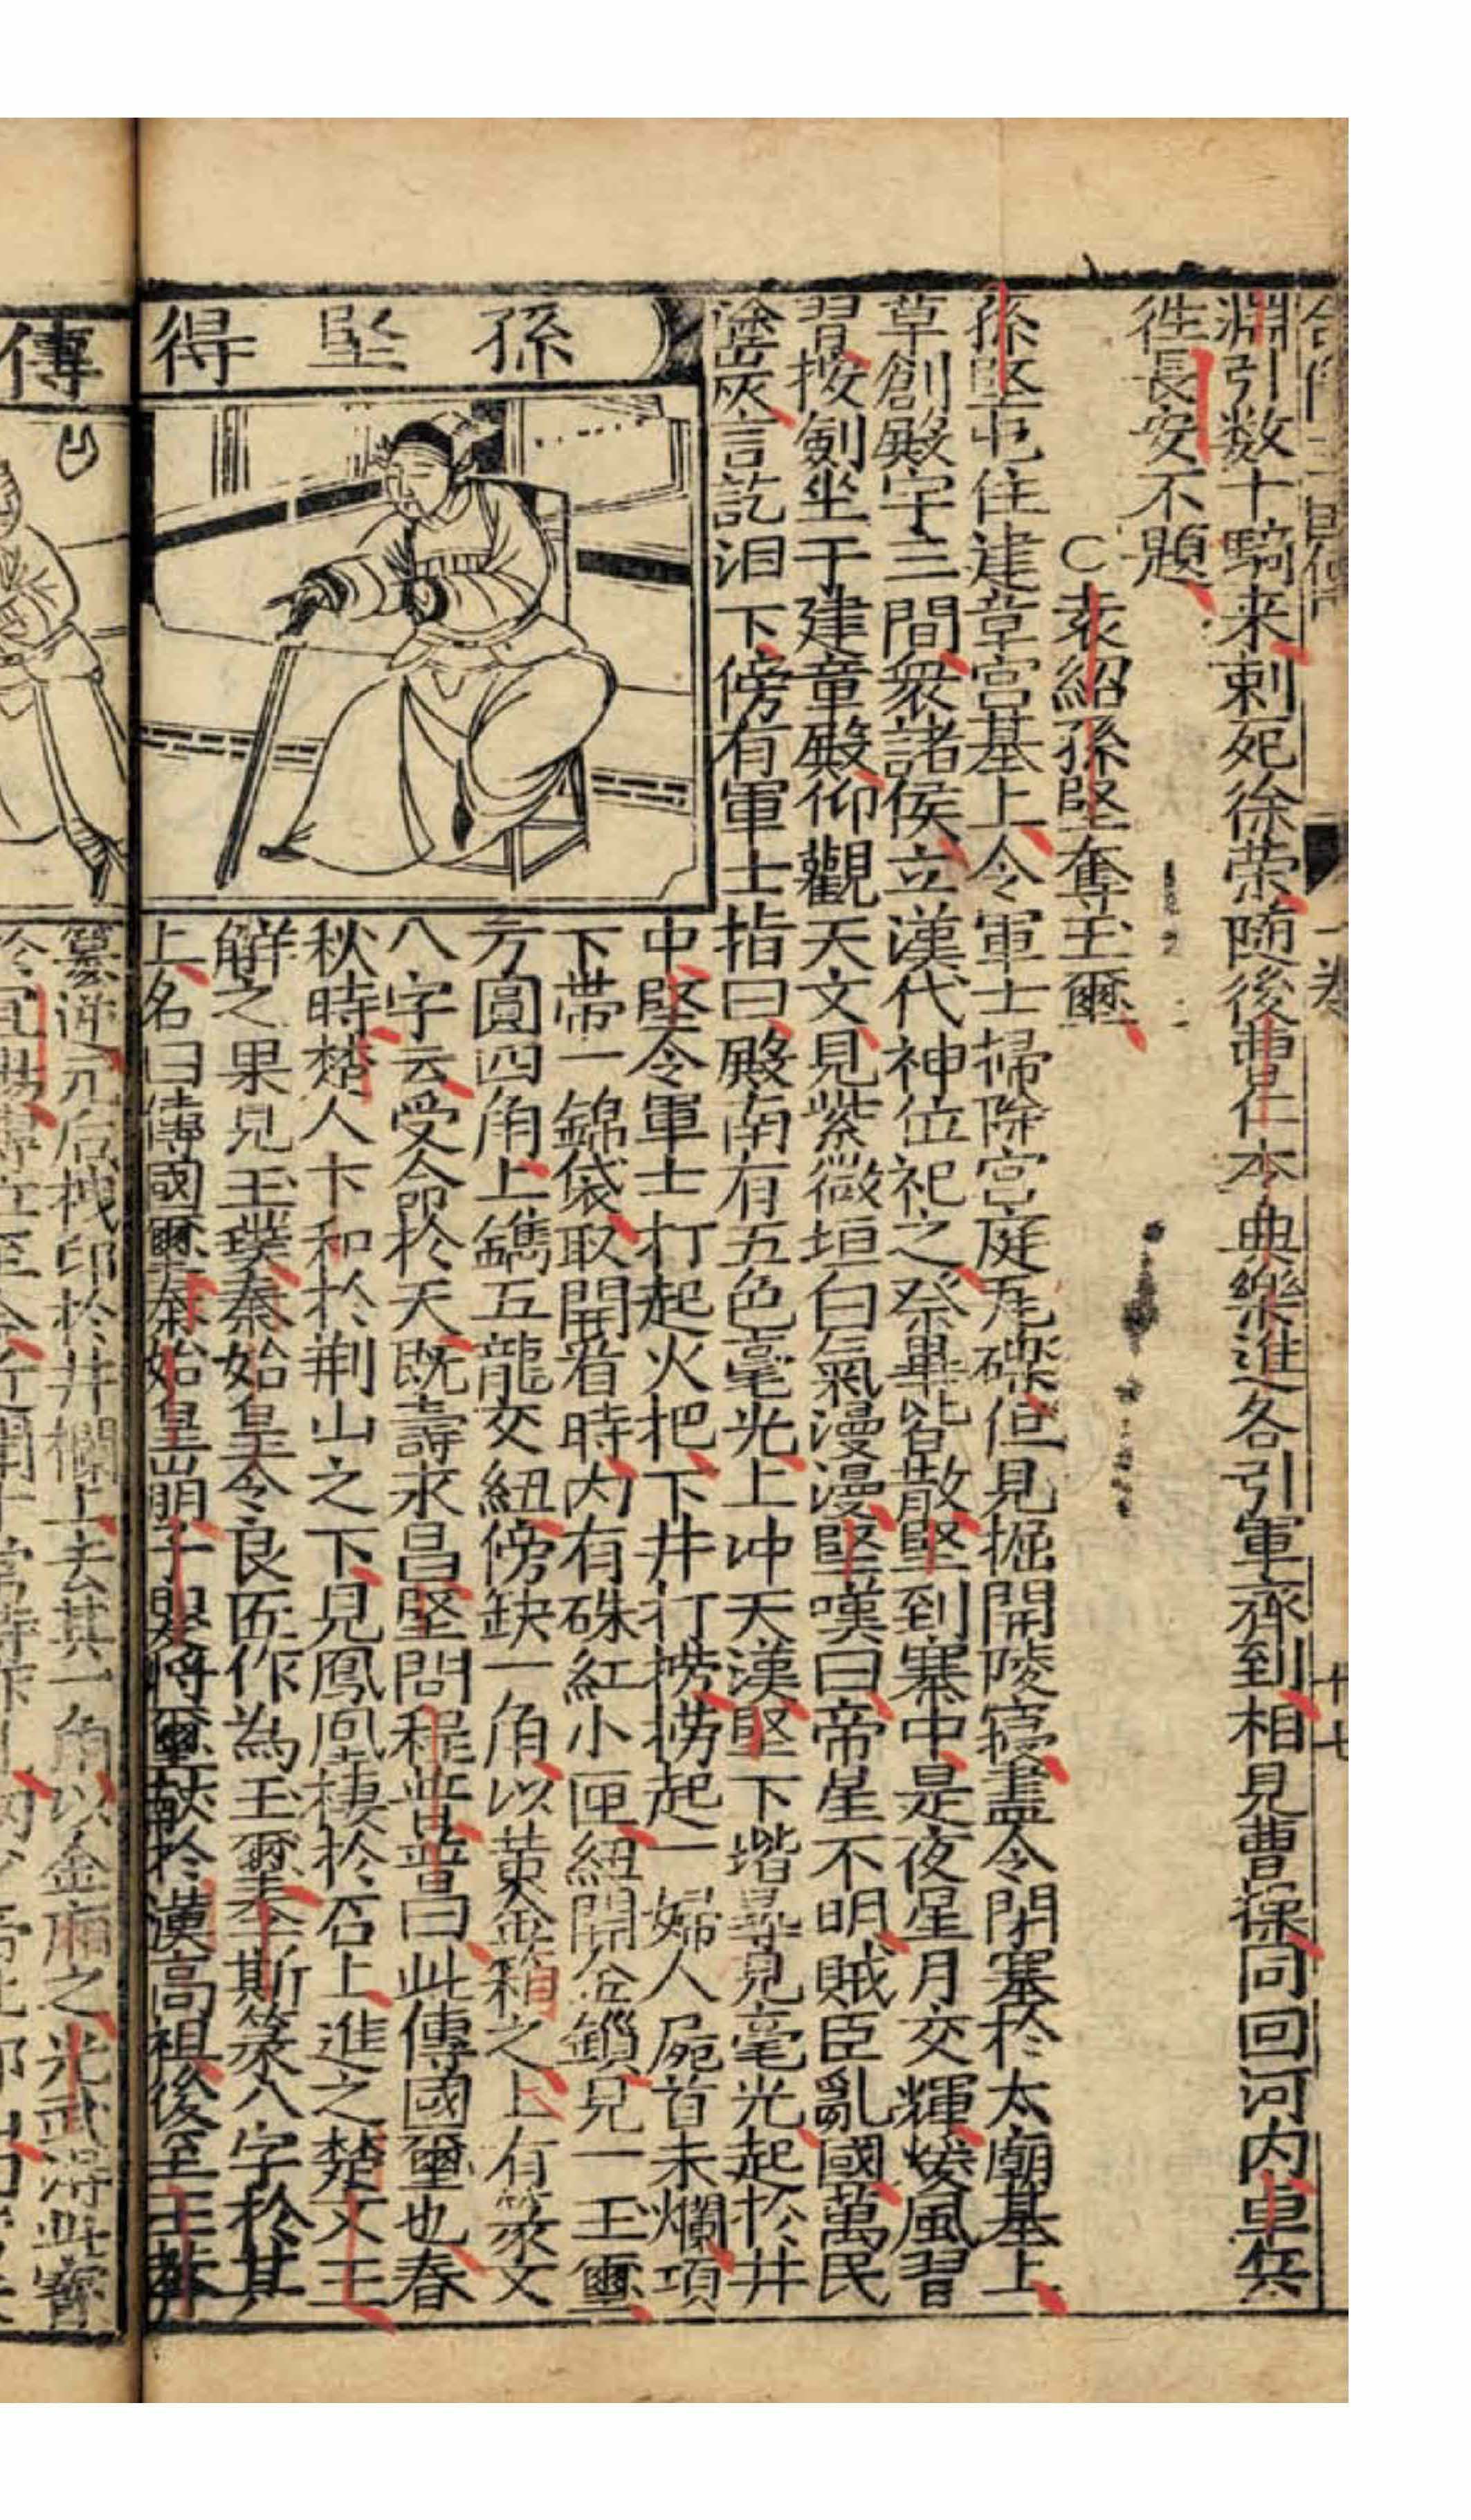 一卷
十七
淵引数十騎来剌死徐荣随後曹仁李典樂進各引軍齊到相見曹操同回河内卓兵
徃長安不題
袁紹孫堅奪玉璽
孫堅屯住建章宮基上令軍士掃除宮庭瓦礫但見掘開陵寢盡令閉塞於太廟基上
草創殿宇三間衆諸侯立漢代神位祀之祭畢皆散堅到寨中是夜星月交輝煖風習
習按劍坐于建章殿仰觀天文見紫微垣白氣漫漫堅嘆曰帝星不明賊臣亂國萬民
塗炭言訖泪下傍有軍士指曰殿南有五色毫光上冲天漢堅下堦尋見毫光起於井
孫堅得
中堅令軍士打起火把下井打撈撈起一婦人屍首未爛項
下帶一錦袋取開看時内有硃紅小匣紐開金鎖見一玉璽
方圓四角上鐫五龍交紐傍缺一角以黄金鑲之上有篆文
八字云受命於天既壽永昌堅問程普普曰此傳國璽也春
秋時楚人卞和於荆山之下見鳳凰棲於石上進之楚文王
解之果見玉璞秦始皇令良匠作為玉璽李斯篆八字於其
上名曰傳國璽秦始皇崩子嬰將璽献於漢高祖後至王莽
傳
篡逆元后拽印於井欄上去其一角以金廂之光武得此寳